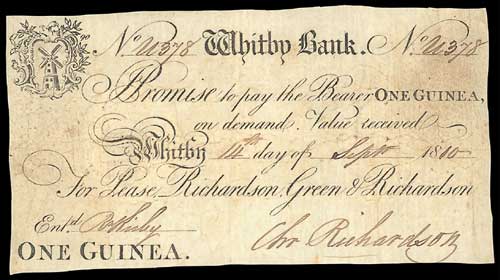 No. U378 Whitby Bank. No. U378
Promise to pay the Bearer ONE GUINEA,
on demand. Value received
Whitby 14th day of Sept 1810
For Pease, Richardson, Green & Richardson
Ent.d
ONE GUINEA. Chr Richardson